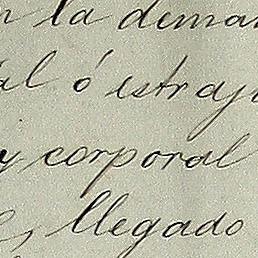 n la deman
al ó estraju
y corporal
llegado